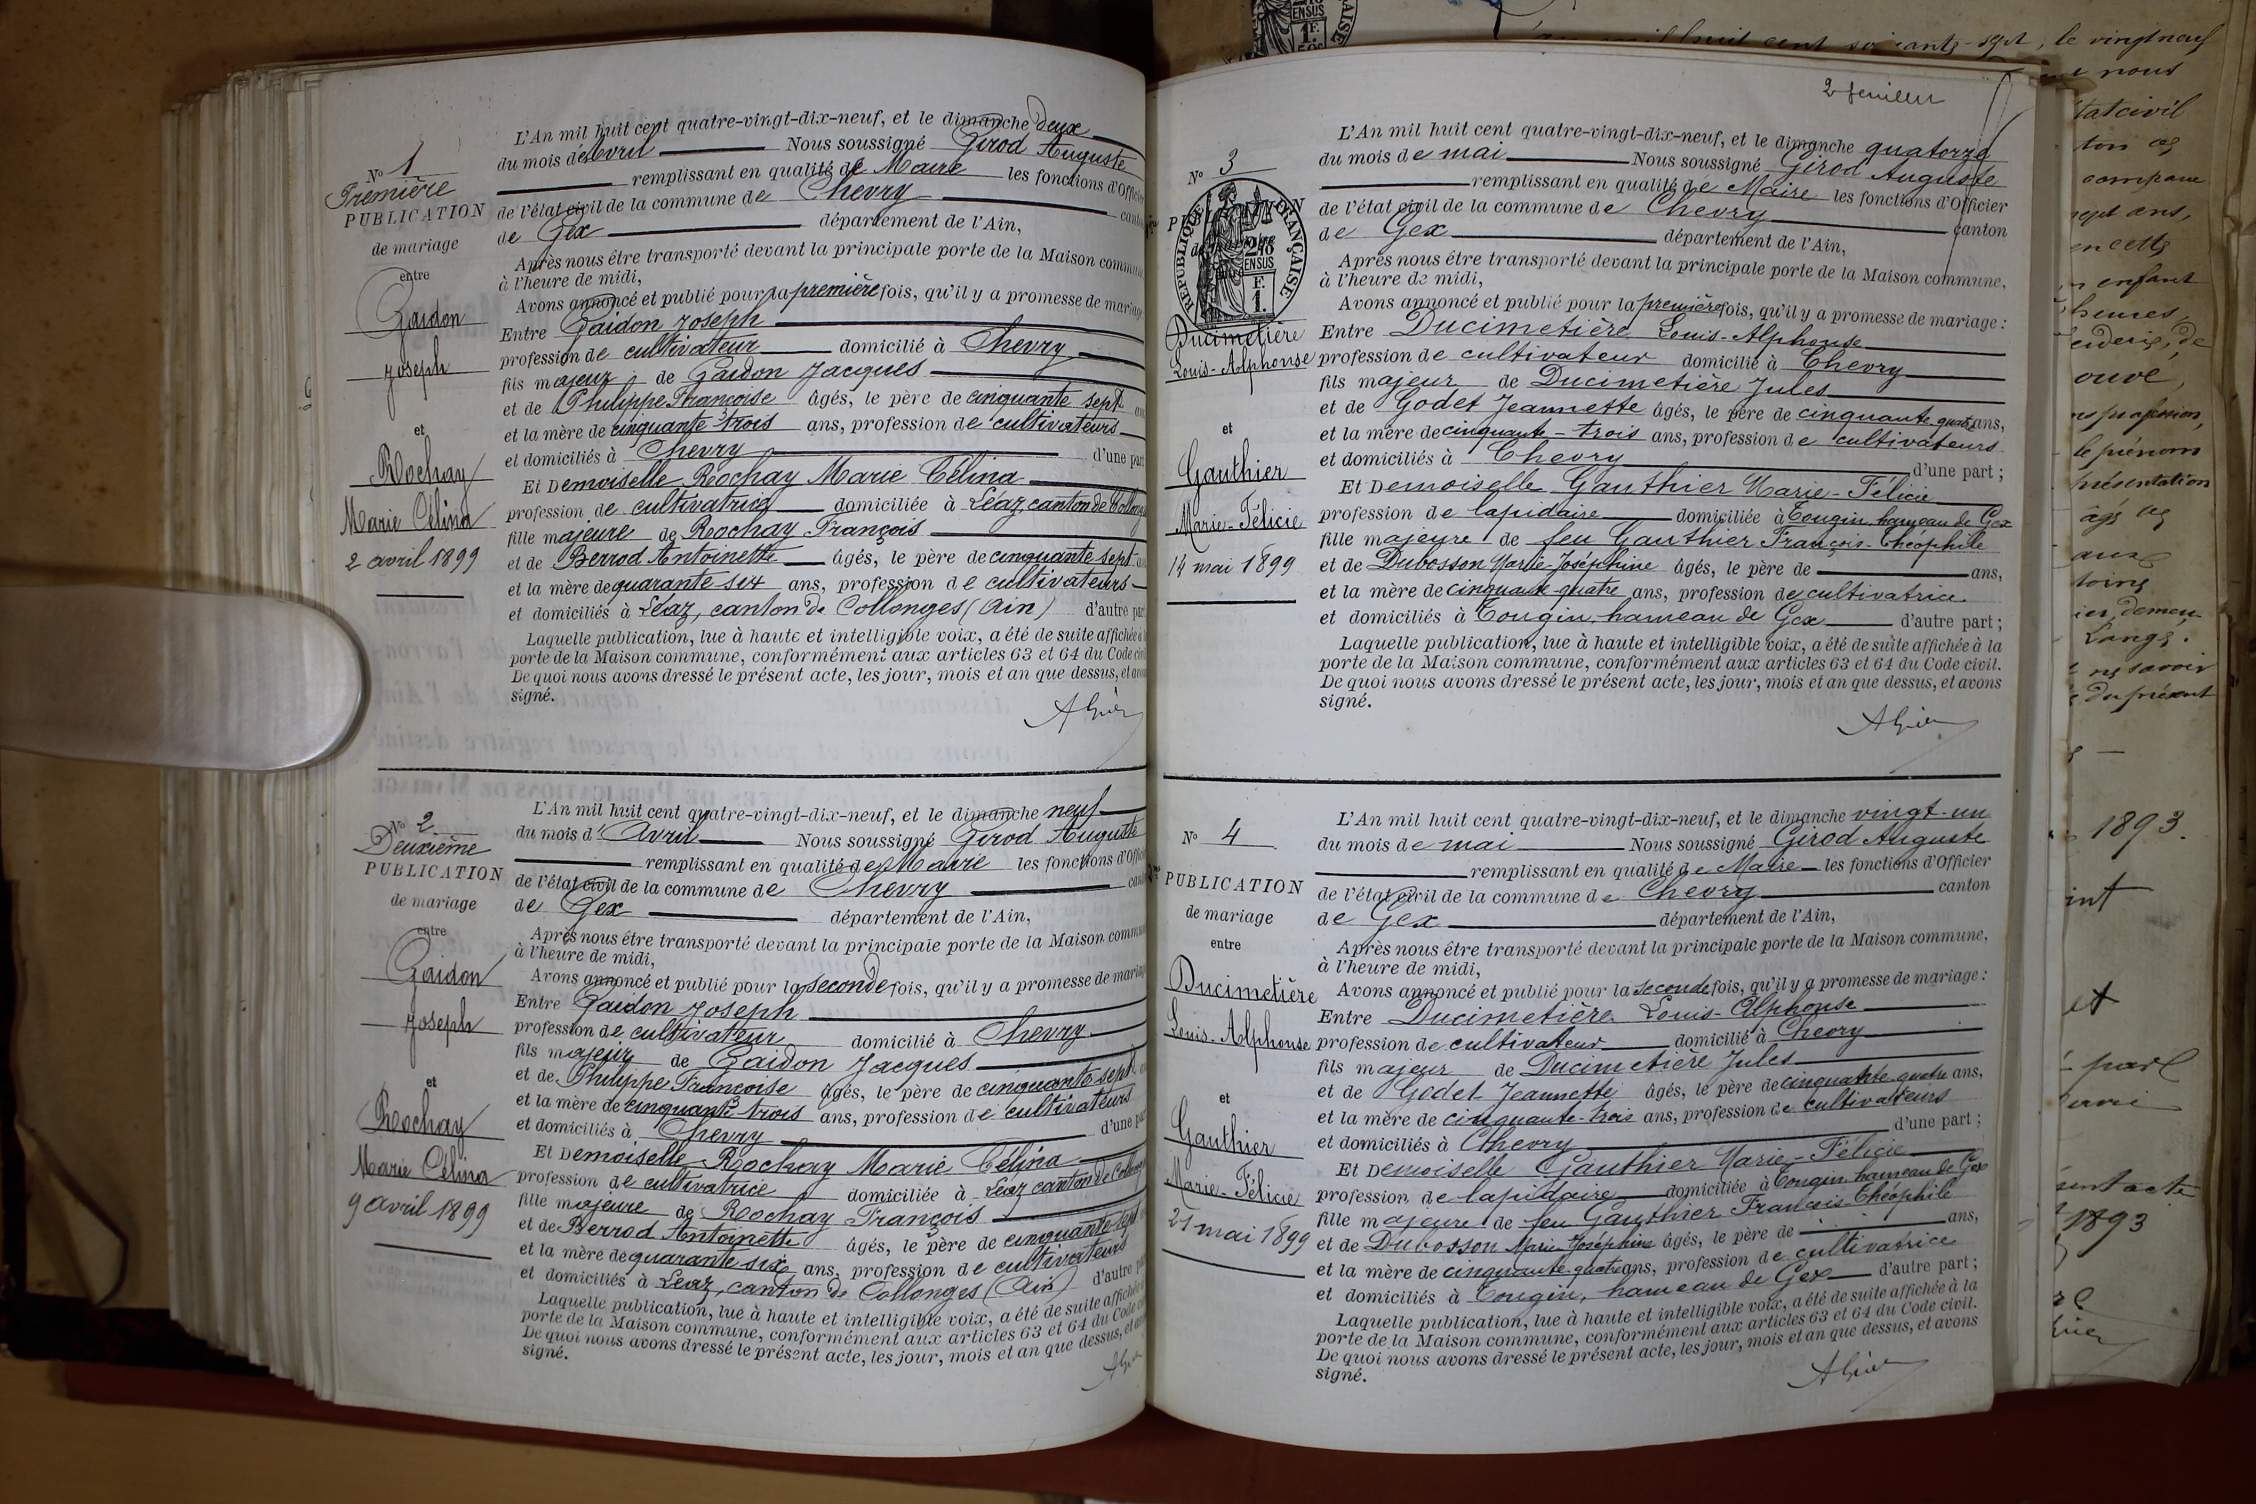 N° 1
Première
PUBLICATION
de mariage
entre
Gaidon
Joseph
et
Rochay
Marie Célina
2 avril 1899
L'An mil huit cent quatre-vingt-dix-neuf, et le dimanche deux
du mois d'Avril Nous soussigné Girod Auguste
remplissant en qualité de Maire les fonctions d'Officier
de l'état civil de la commune de Chevry canton
de Gex département de l'Ain,
Après nous être transporté devant la principale porte de la Maison commune
à l'heure de midi,
Avons annoncé et publié pour la première fois, qu'il y a promesse de mariage
Entre Gaidon Joseph
profession de cultivateur domicilié à Chevry
fils majeur de Gaidon Jacques
et de Philippe Françoise âgés, le père de cinquante sept ans
et la mère de cinquante trois ans, profession de cultivateurs
et domiciliés à Chevry d'une part
Et Demoiselle Rochay Marie Célina
profession de cultivatrice domiciliée à Léaz, canton de Collonges
fille majeure de Rochay François
et de Berrod Antoinette âgés, le père de cinquante sept ans
et la mère de quarante six ans, profession de cultivateurs
et domiciliés à Léaz, canton de Collonges (Ain) d'autre part
Laquelle publication, lue à haute et intelligible voix, a été de suite affichée à la
porte de la Maison commune, conformément aux articles 63 et 64 du Code civil
De quoi nous avons dressé le présent acte, les jour, mois et an que dessus, et avons
signé.
N° 2
Deuxième
PUBLICATION
de mariage
entre
Gaidon
Joseph
et
Rochay
Marie Célina
9 avril 1899
L'An mil huit cent quatre-vingt-dix-neuf, et le dimanche neuf
du mois d'Avril Nous soussigné Girod Auguste
remplissant en qualité de Maire les fonctions d'Officier
de l'état civil de la commune de Chevry canton
de Gex département de l'Ain,
Après nous être transporté devant la principale porte de la Maison commune
à l'heure de midi,
Avons annoncé et publié pour la seconde fois, qu'il y a promesse de mariage
Entre Gaidon Joseph
profession de cultivateur domicilié à Chevry
fils majeur de Gaidon Jacques
et de Philippe Françoise âgés, le père de cinquante sept
et la mère de cinquante trois ans, profession de cultivateurs
et domiciliés à Chevry d'une part
Et Demoiselle Rochay Marie Célina
profession de cultivatrice domiciliée à Léaz canton de Collonges
fille majeure de Rochay François
et de Berrod Antoinette âgés, le père de cinquante sept
et la mère de quarante six ans, profession de cultivateurs
et domiciliés à Léaz, canton de Collonges (Ain) d'autre part
Laquelle publication, lue à haute et intelligible voix, a été de suite affichée à
porte de la Maison commune, conformément aux articles 63 et 64 du Code
De quoi nous avons dressé le présent acte, les jour, mois et an que dessus, et avons
signé.
2e feuillet
N° 3
RÉPUBLIQUE FRANÇAISE
Ducimetière
Louis-Alphonse
et
Gauthier
Marie-Félicie
14 mai 1899
L'An mil huit cent quatre-vingt-dix-neuf, et le dimanche quatorze
du mois de mai Nous soussigné Girod Auguste
remplissant en qualité de Maire les fonctions d'Officier
de l'état civil de la commune de Chevry canton
de Gex département de l'Ain,
Après nous être transporté devant la principale porte de la Maison commune,
à l'heure de midi,
Avons annoncé et publié pour la première fois, qu'il y a promesse de mariage :
Entre Ducimetière Louis-Alphonse
profession de cultivateur domicilié à Chevry
fils majeur de Ducimetière Jules
et de Godet Jeannette âgés, le père de cinquante quatre ans,
et la mère de cinquante-trois ans, profession de cultivateurs
et domiciliés à Chevry d'une part ;
Et Demoiselle Gauthier Marie-Félicie
profession de lapidaire domiciliée à Tougin, hameau de Gex
fille majeure de feu Gauthier François-Théophile
et de Dubosson Marie-Joséphine âgés, le père de ans,
et la mère de cinquante-quatre ans, profession de cultivatrice
et domiciliés à Tougin, hameau de Gex d'autre part ;
Laquelle publication, lue à haute et intelligible voix, a été de suite affichée à la
porte de la Maison commune, conformément aux articles 63 et 64 du Code civil.
De quoi nous avons dressé le présent acte, les jour, mois et an que dessus, et avons
signé.
N° 4
2me PUBLICATION
de mariage
entre
Ducimetière
Louis-Alphonse
et
Gauthier
Marie-Félicie
21 mai 1899
L'An mil huit cent quatre-vingt-dix-neuf, et le dimanche vingt-un
du mois de mai Nous soussigné Girod Auguste
remplissant en qualité de Maire les fonctions d'Officier
de l'état civil de la commune de Chevry canton
de Gex département de l'Ain,
Après nous être transporté devant la principale porte de la Maison commune,
à l'heure de midi,
Avons annoncé et publié pour la seconde fois, qu'il y a promesse de mariage :
Entre Ducimetière Louis-Alphonse
profession de cultivateur domicilié à Chevry
fils majeur de Ducimetière Jules
et de Godet Jeannette âgés, le père de cinquante quatre ans,
et la mère de cinquante-trois ans, profession de cultivateurs
et domiciliés à Chevry d'une part ;
Et Demoiselle Gauthier Marie-Félicie
profession de lapidaire domiciliée à Tougin hameau de Gex
fille majeure de feu Gauthier François-Théophile
et de Dubosson Marie Joséphine âgés, le père de ans,
et la mère de cinquante-quatre ans, profession de cultivatrice
et domiciliés à Tougin, hameau de Gex d'autre part ;
Laquelle publication, lue à haute et intelligible voix, a été de suite affichée à la
porte de la Maison commune, conformément aux articles 63 et 64 du Code civil.
De quoi nous avons dressé le présent acte, les jour, mois et an que dessus, et avons
signé.
huit cent soixante-sept, le vingt neuf
nous
état civil
compare
sept ans,
en cette
enfant
heures,
profession,
le prénom
présentation
demeu
savoir
du présent
1893.
et
1893